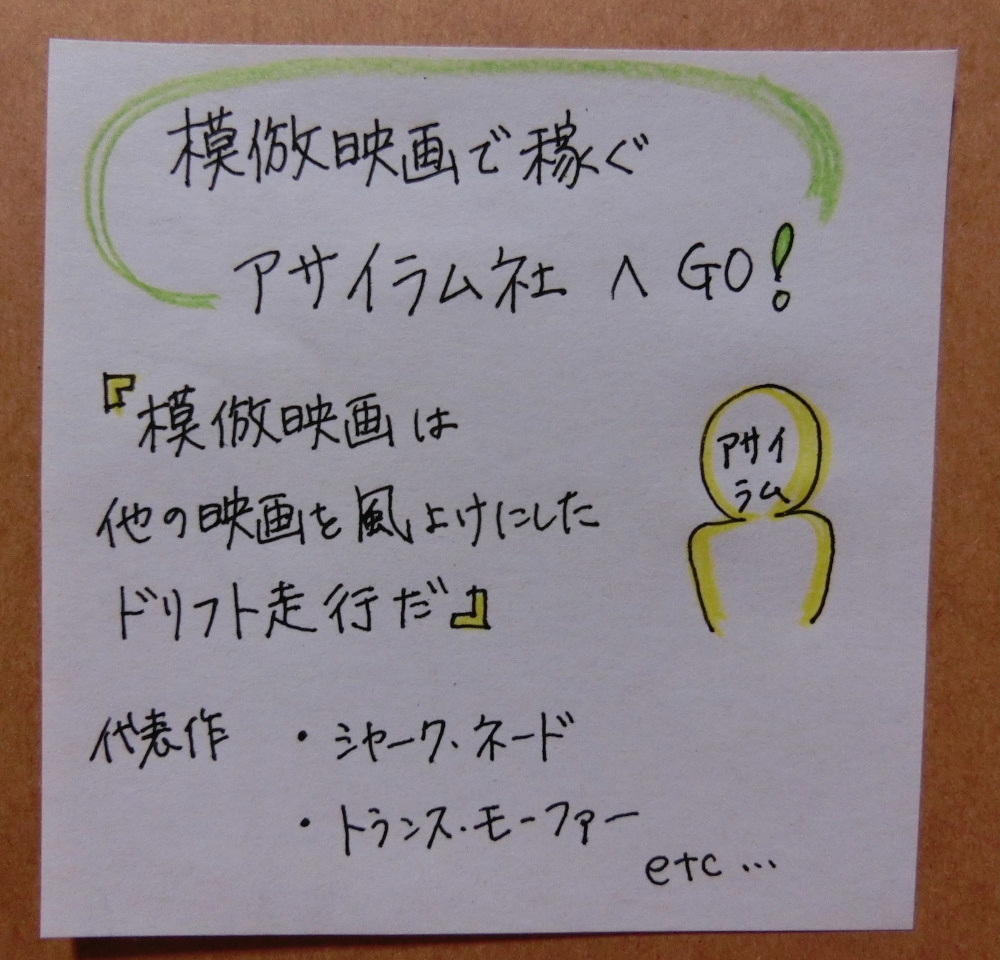 模倣映画で稼ぐ
アサイラム社 へ GO!
『模倣映画は
他の映画を風よけにした
ドリフト走行だ』
アサイ
ラム
代表作 ・シャーク・ネード
・トランス・モーファー
etc…